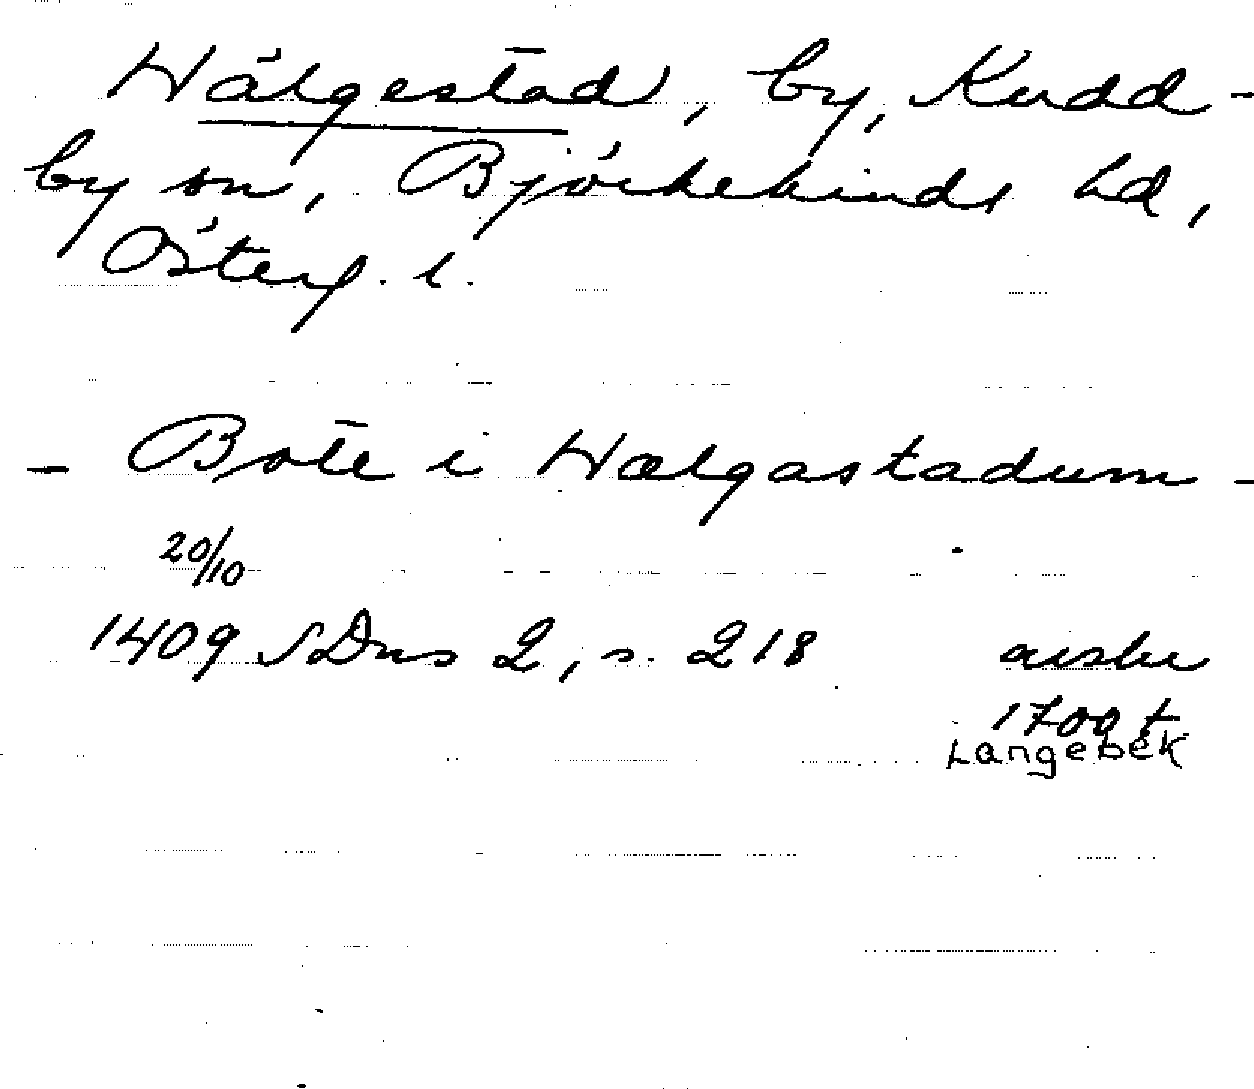 Hälgestad, by, Kudd-
by sn, Björkekinds hd,
Österg. l.
- Bote i Hælgastadum -
20/10
1409 SDns 2, s. 218 avskr
1700 t
Langebek